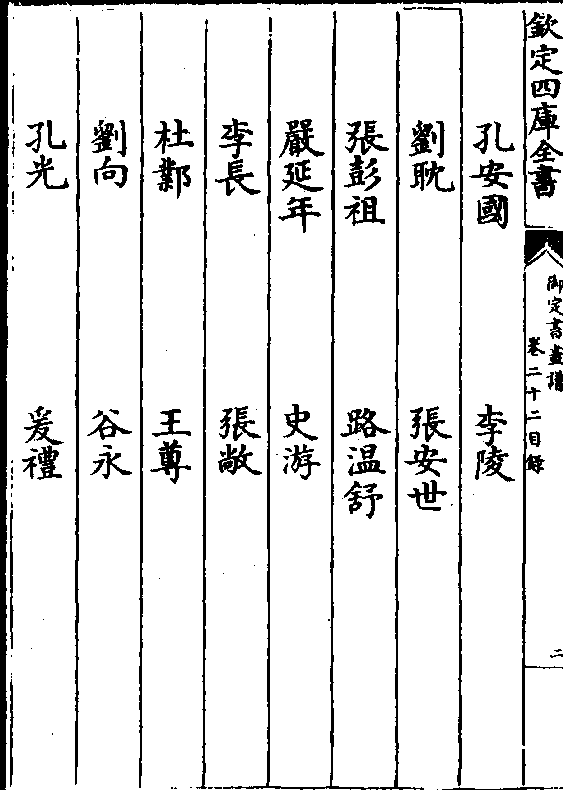 欽定四庫全書
御定書畫譜
卷二十二目録
二
孔安國 李陵
劉耽 張安世
張彭祖 路温舒
嚴延年 史游
李長 張敞
杜鄴 王尊
劉向 谷永
孔光 爰禮